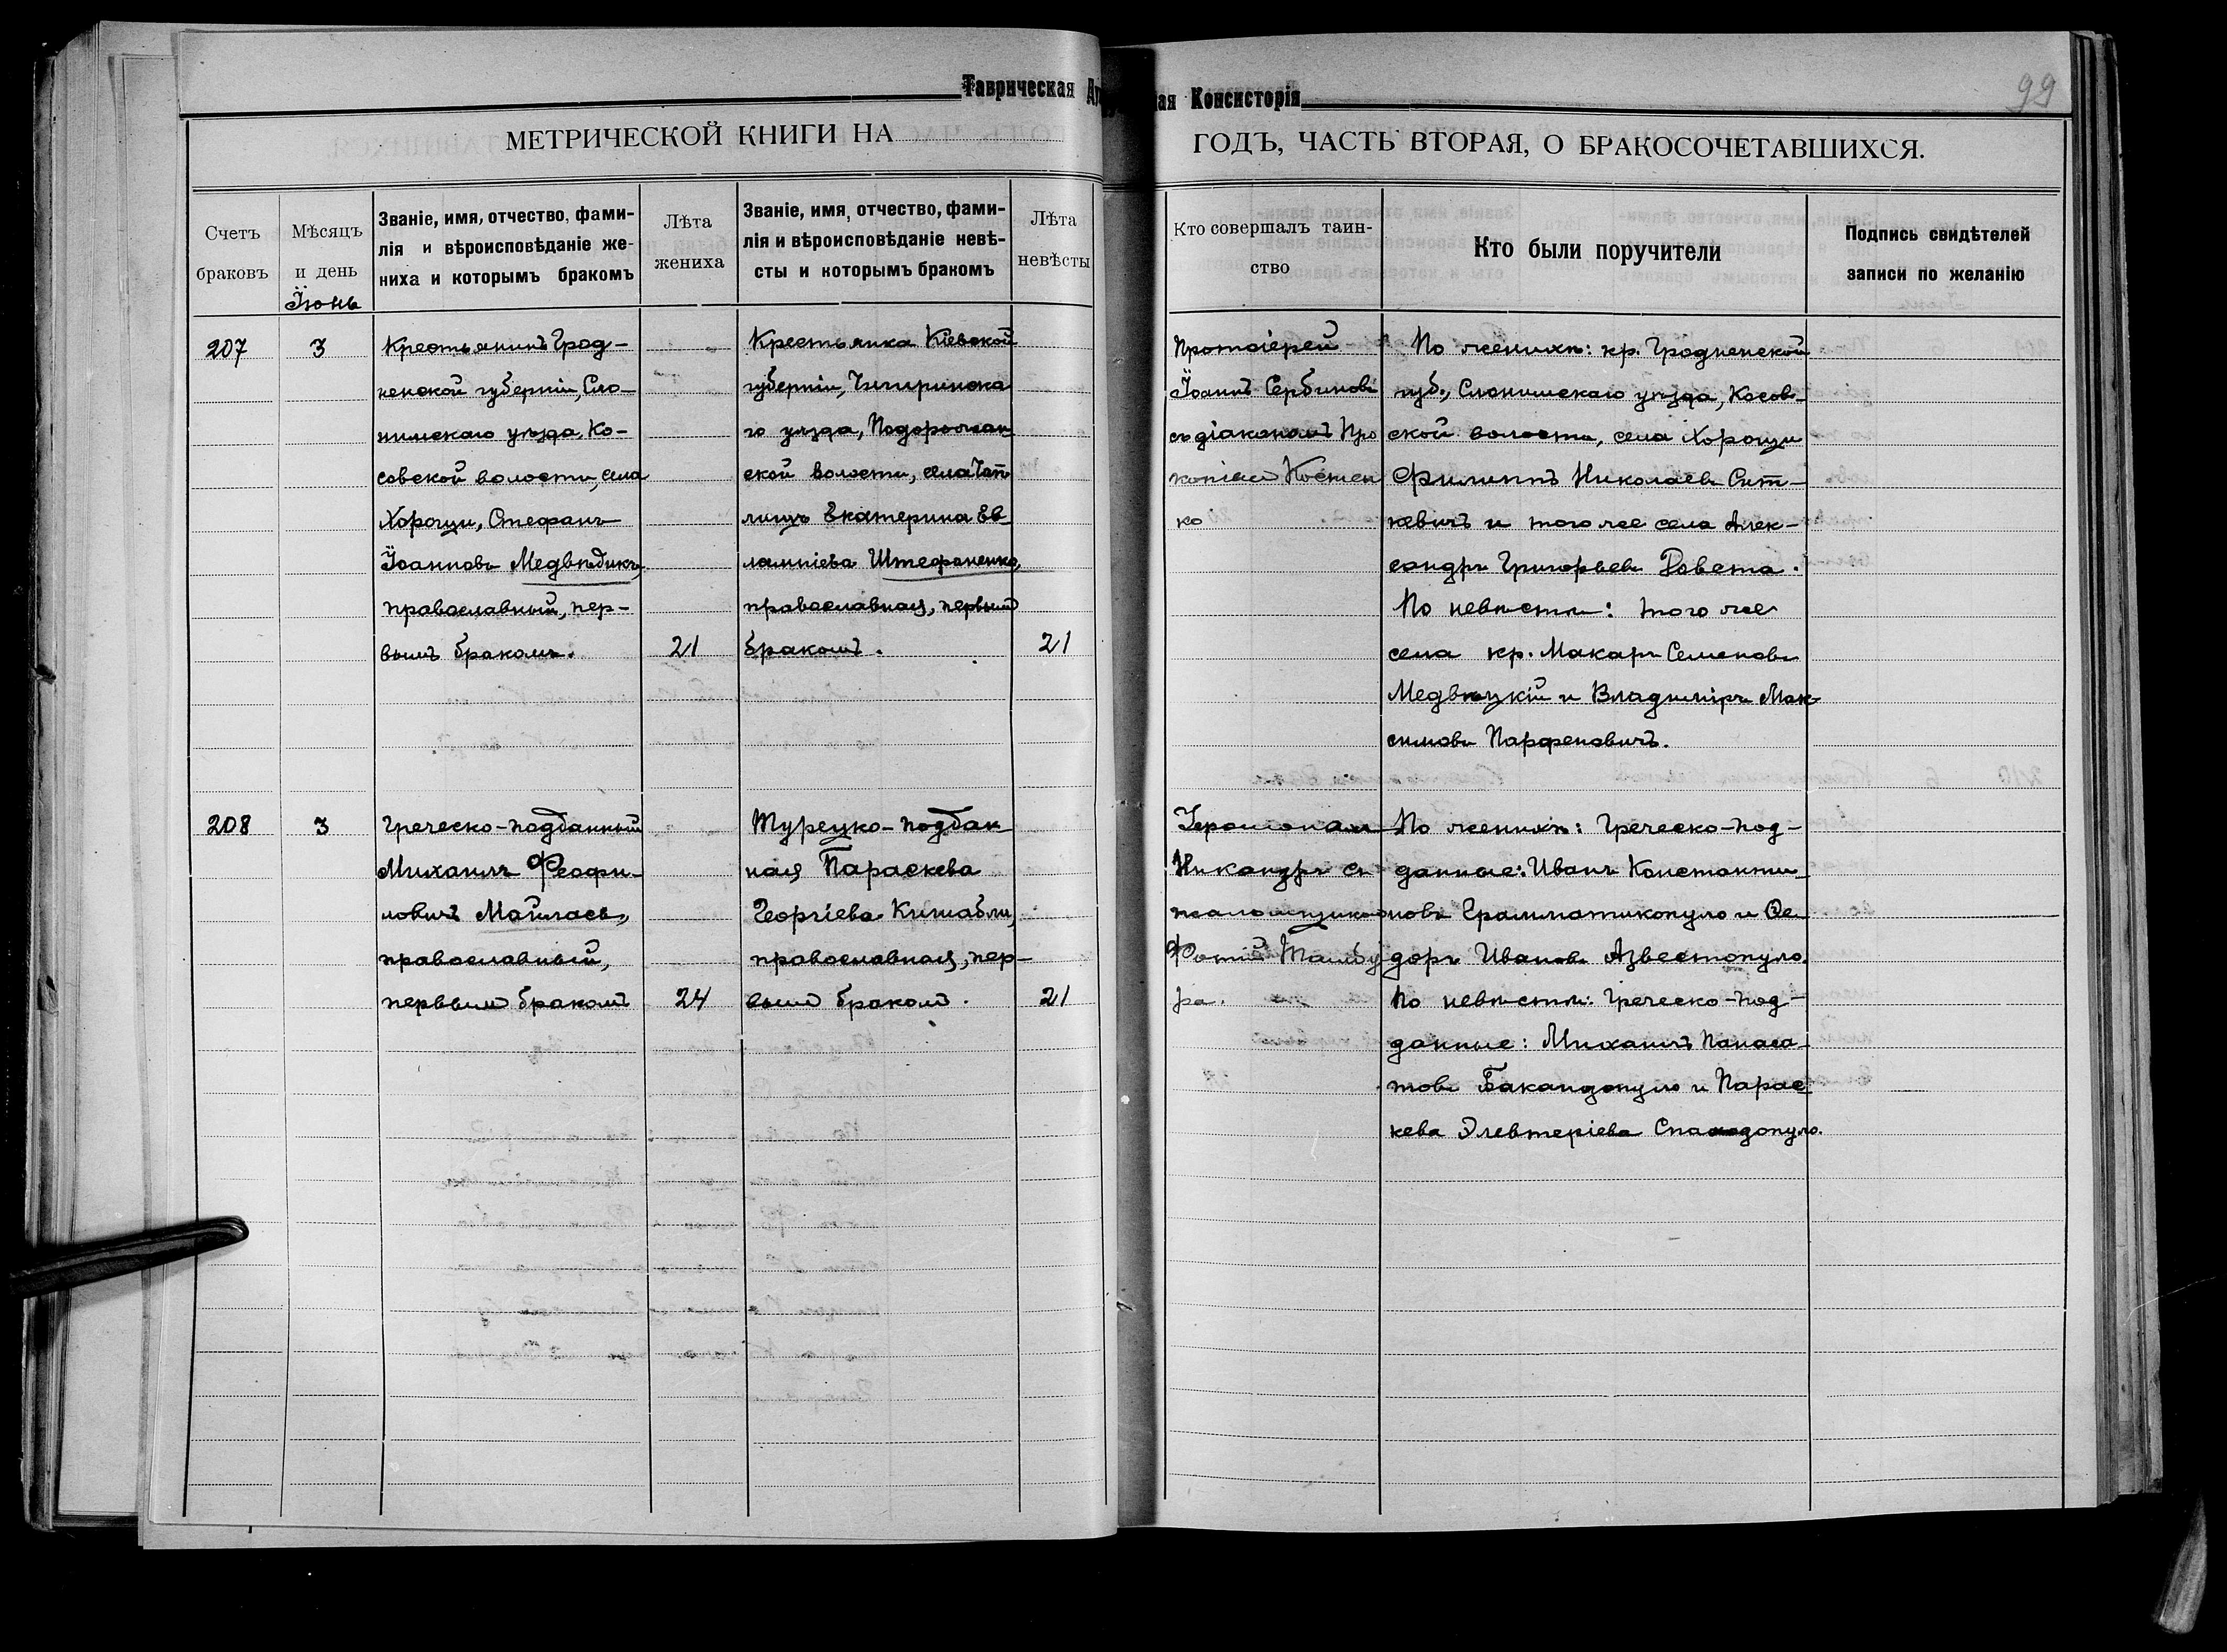 Таврическая
ая Консисторія
99
МЕТРИЧЕСКОЙ КНИГИ НА
ГОДЪ, ЧАСТЬ ВТОРАЯ, О БРАКОСОЧЕТАВШИХСЯ.
Счетъ
браковъ
Мѣсяцъ
и день
Іюнь
Званіе, имя, отчество, фами-
лія и вѣроисповѣданіе же-
ниха и которымъ бракомъ
Лѣта
жениха
Званіе, имя, отчество, фами-
лія и вѣроисповѣданіе невѣ-
сты и которымъ бракомъ
Лѣта
невѣсты
Кто совершалъ таин-
ство
Кто были поручители
Подпись свидѣтелей
записи по желанію
207
3
Крестьянинъ Грод-
ненской губерніи, Сло-
нимскаго уѣзда, Ко-
совской волости, села
Хорощи, Стефанъ
Іоанновъ Медвѣдикъ,
православный, пер-
вымъ бракомъ.
21
Крестьянка Кіевской
губерніи, Чигиринска
го уѣзда, Подорожан
ской волости, села
Екатерина Ев
лампіева Штефаненко,
православная, первымъ
бракомъ.
21
Протоіерей
Іоаннъ Сербиновъ
съ діакономъ Про
копіемъ Костен
ко
По женихѣ: кр. Гродненской
губ., Слонимскаго уѣзда, Косов-
ской волости, села Хорощи
Филиппъ Николаевъ Сит-
кевичъ и того же села Алек-
сандръ Григорьевъ Ровета.
По невѣстѣ: того же
села кр. Макаръ Семеновъ
Медвѣцкій и Владиміръ Мак-
симовъ Парфеновичъ.
208
3
Греческо-подданный
Михаилъ Феофи-
ловичъ Майласъ,
православный,
первымъ бракомъ
24
Турецко-поддан
ная Параскева
Георгіева
православная, пер-
вымъ бракомъ.
21
Іеромонахъ
Никандръ съ
псаломщикомъ
Фотій Тамбу
ра.
По женихѣ: Греческо-под-
данные: Иванъ Константи-
новъ Грамматикопуло и Ѳе-
доръ Ивановъ Азвестопуло.
По невѣстѣ: Греческо-под-
данные: Михаилъ Панаса-
товъ Бакандопуло и Парас
кева Элевтеріева